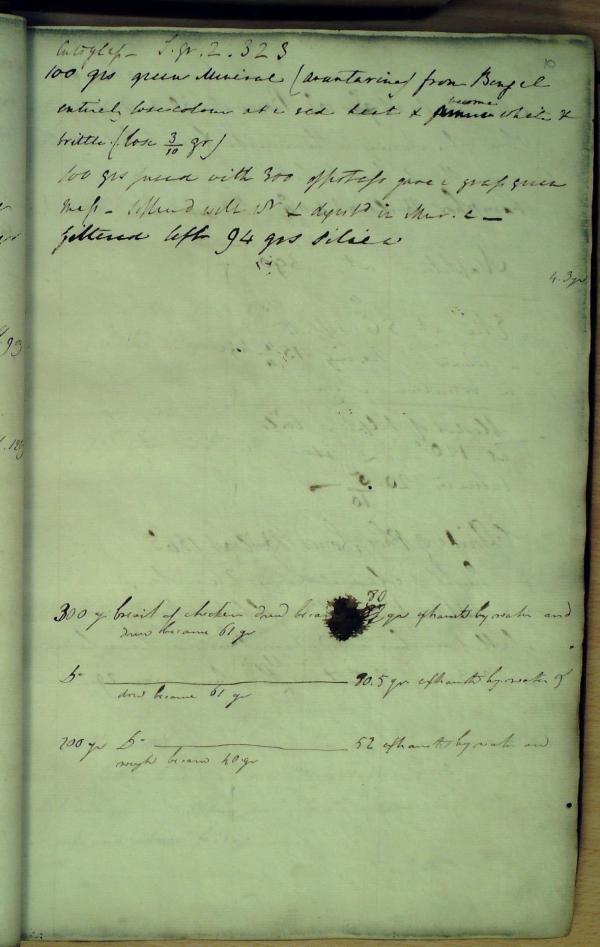 S. gr. 2.323
10
100 grs green Mineral (avanturine) from Bengal
entirely lose colour at a red heat & become white &
brittle. (lose 3/10 gr)
100 grs fused with 300 of potass gave a grass green
mass - in Mur. a -
filtered left 94 grs Silica
4.3 gr
300 gr breast of chicken dried became 80 grs exhausted by water and
dried became 61 gr
Do 90.5 grs exhausted by water &
dried became 61 gr
200 gr Do 52 exhausted by water and
weigh became 40 gr